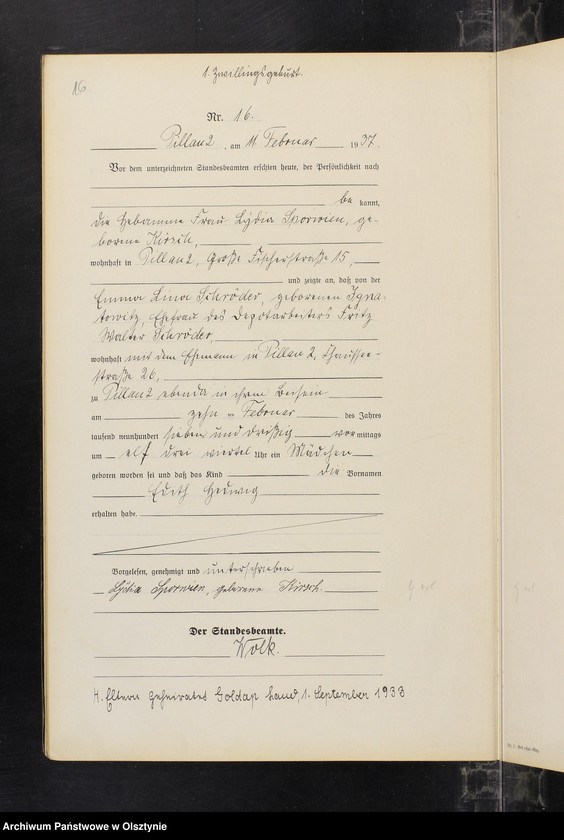 16
1. Zwillingsgeburt.
Nr. 16.
Pillau 2, am 11. Februar 1937.
Vor dem unterzeichneten Standesbeamten erschien heute, der Persönlichkeit nach
be kannt,
die Hebamme Frau Lydia Sporwien, ge-
borene Kirsch,
wohnhaft in Pillau 2, Große Fischerstraße 15,
und zeigte an, daß von der
Emma Lina Schröder, geborenen Igna-
towitz, Ehefrau des Depotarbeiters Fritz
Walter Schröder,
wohnhaft mit dem Ehemann in Pillau 2, Chaussee-
straße 26,
zu Pillau 2 ebenda in ihrem Beisein
am zehn ten Februar des Jahres
tausend neunhundert sieben und dreißig vor mittags
um elf drei viertel Uhr ein Mädchen
geboren worden sei und daß das Kind die Vornamen
Edith Hedwig
erhalten habe.
Vorgelesen, genehmigt und unterschrieben
Lydia Sporwien, geborene Kirsch.
Der Standesbeamte.
Wolk.
H. Eltern geheiratet Goldap Land, 1. September 1933
Archiwum Państwowe w Olsztynie